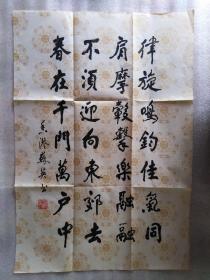 律旋鳴鈞佳氣同
肩摩轂擊樂融融
不須迎向東郊去
春在千門萬戶中